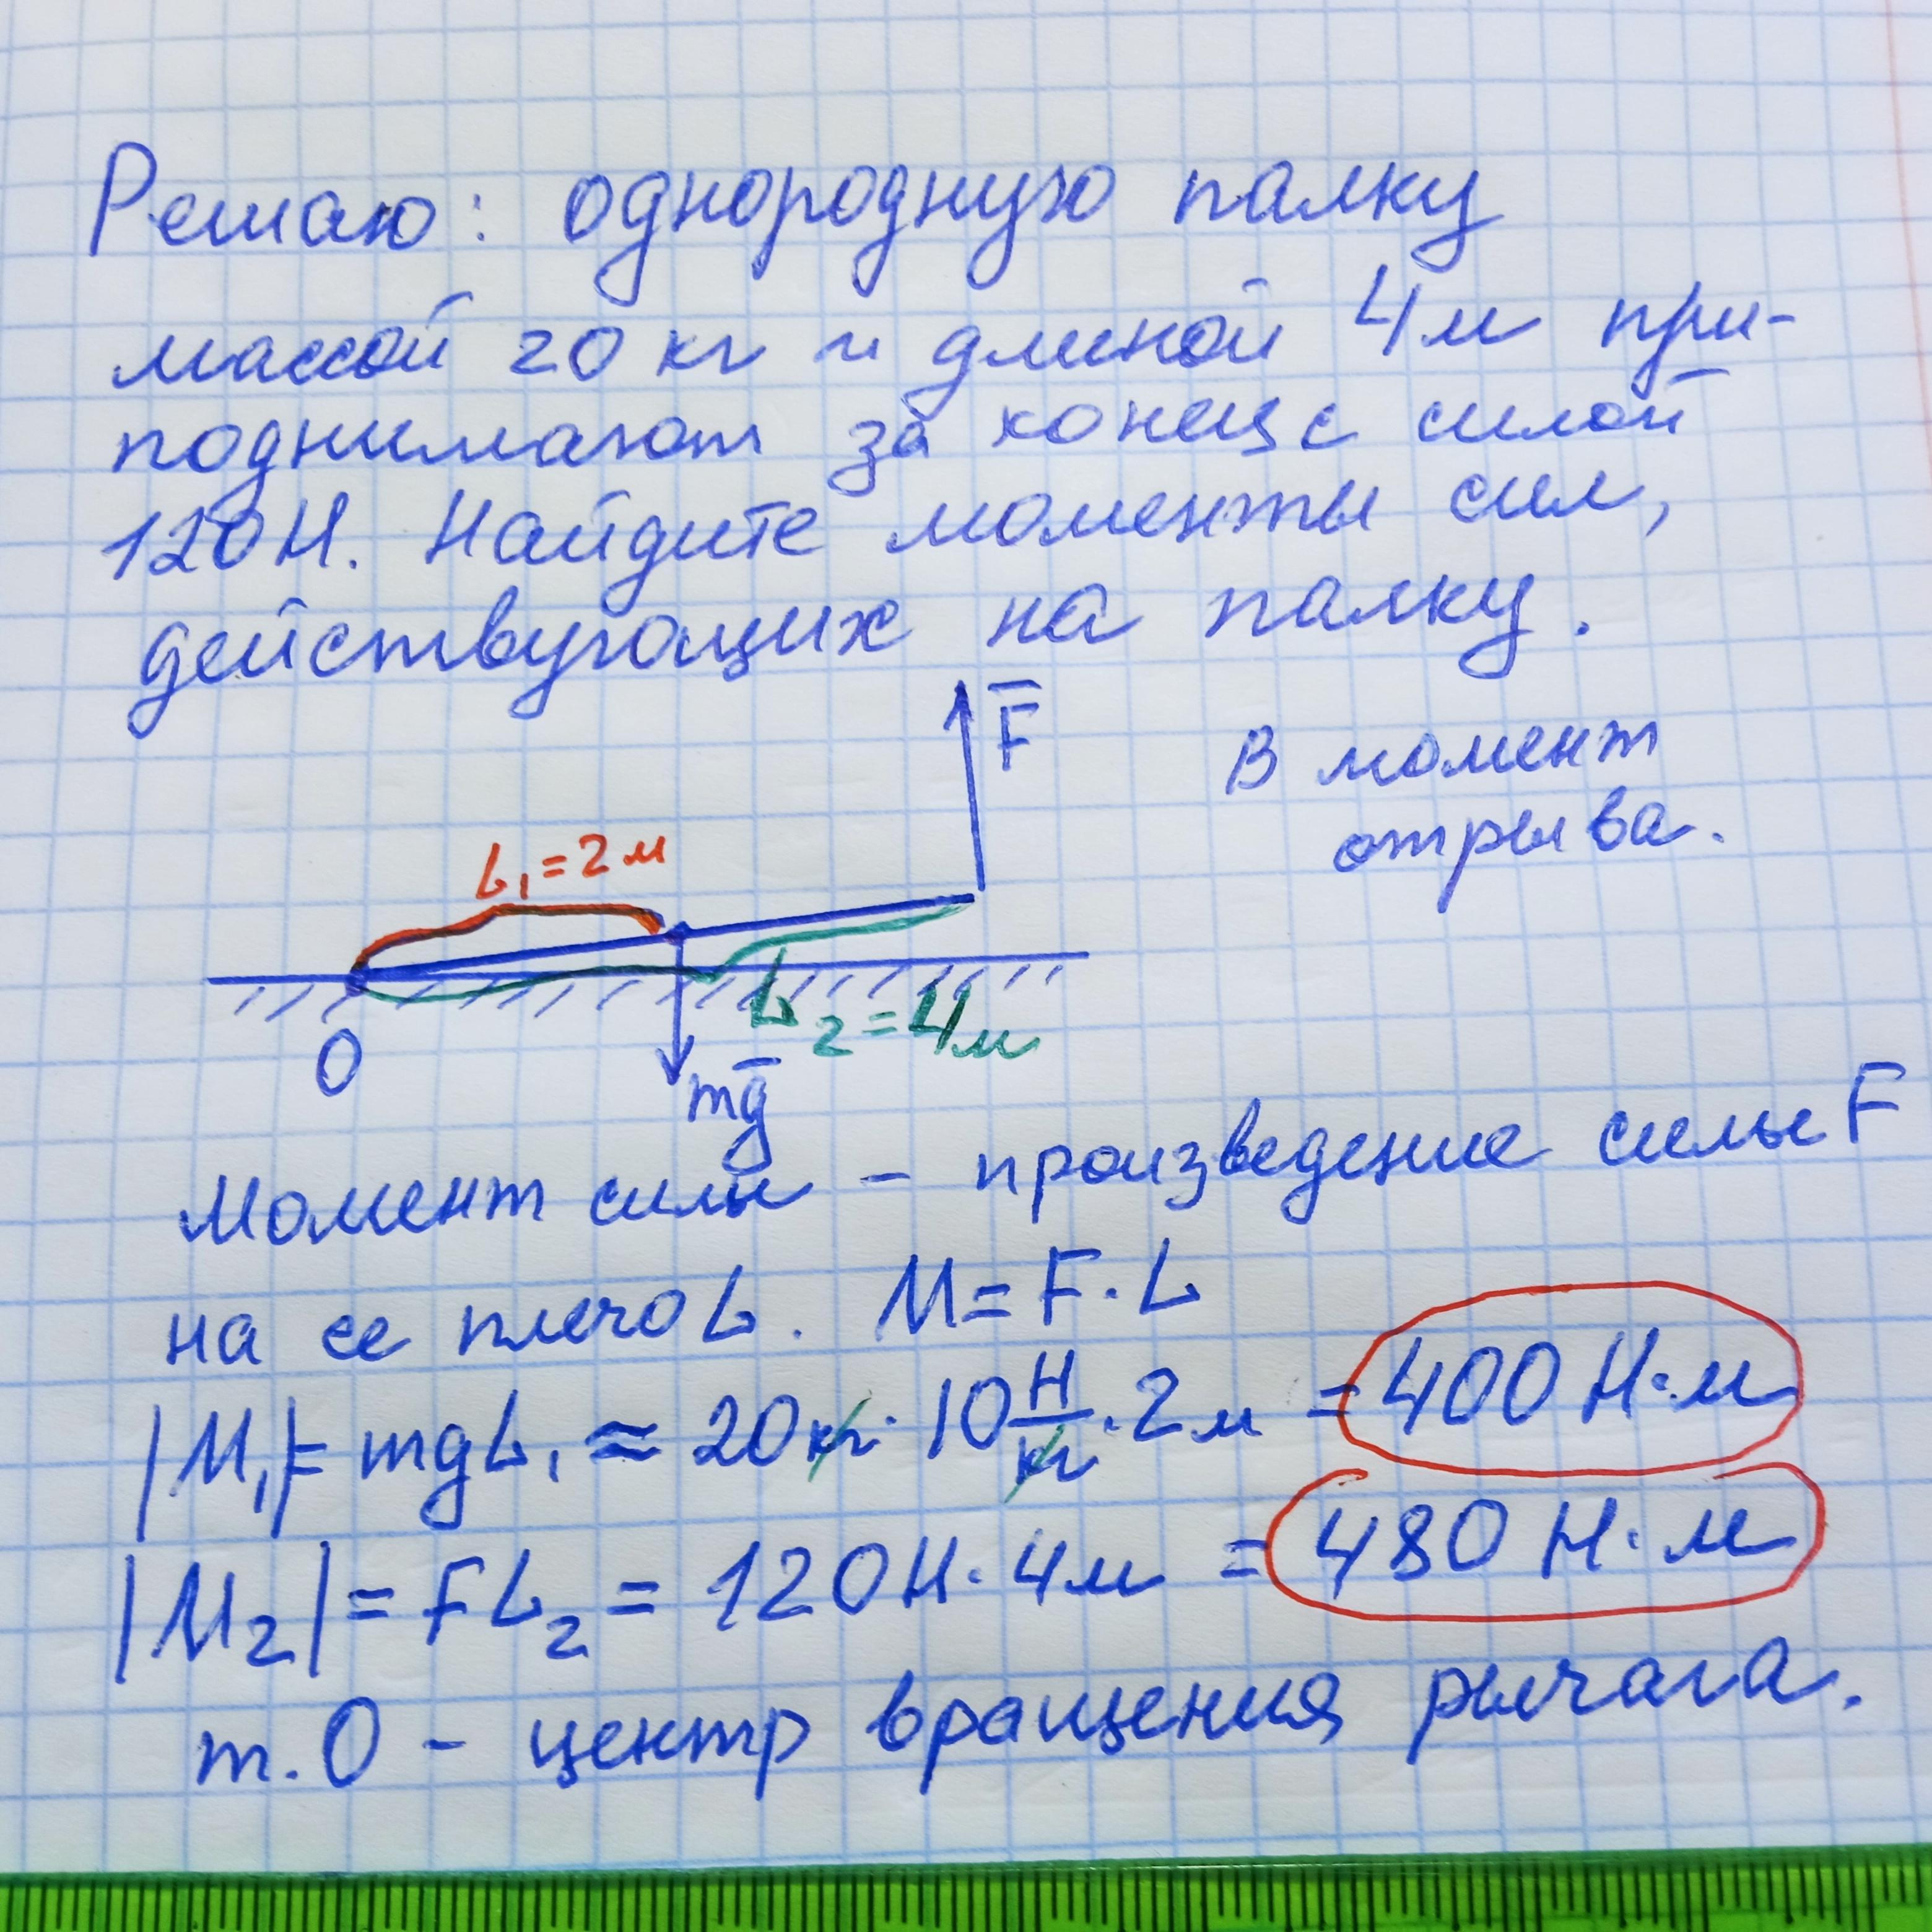 Решаю: однородную палку
массой 20 кг и длиной 4 м при-
поднимают за конец с силой
120 Н. Найдите моменты сил,
действующих на палку.
F
В момент
отрыва.
L₁ = 2 м
L₂ = 4 м
O
mg
Момент силы – произведение силы F
на ее плечо L. M = F · L
|M₁| = mgL₁ ≈ 20 кг · 10 Н/кг · 2 м = 400 Н·м
|M₂| = FL₂ = 120 Н · 4 м = 480 Н·м
т. O – центр вращения рычага.